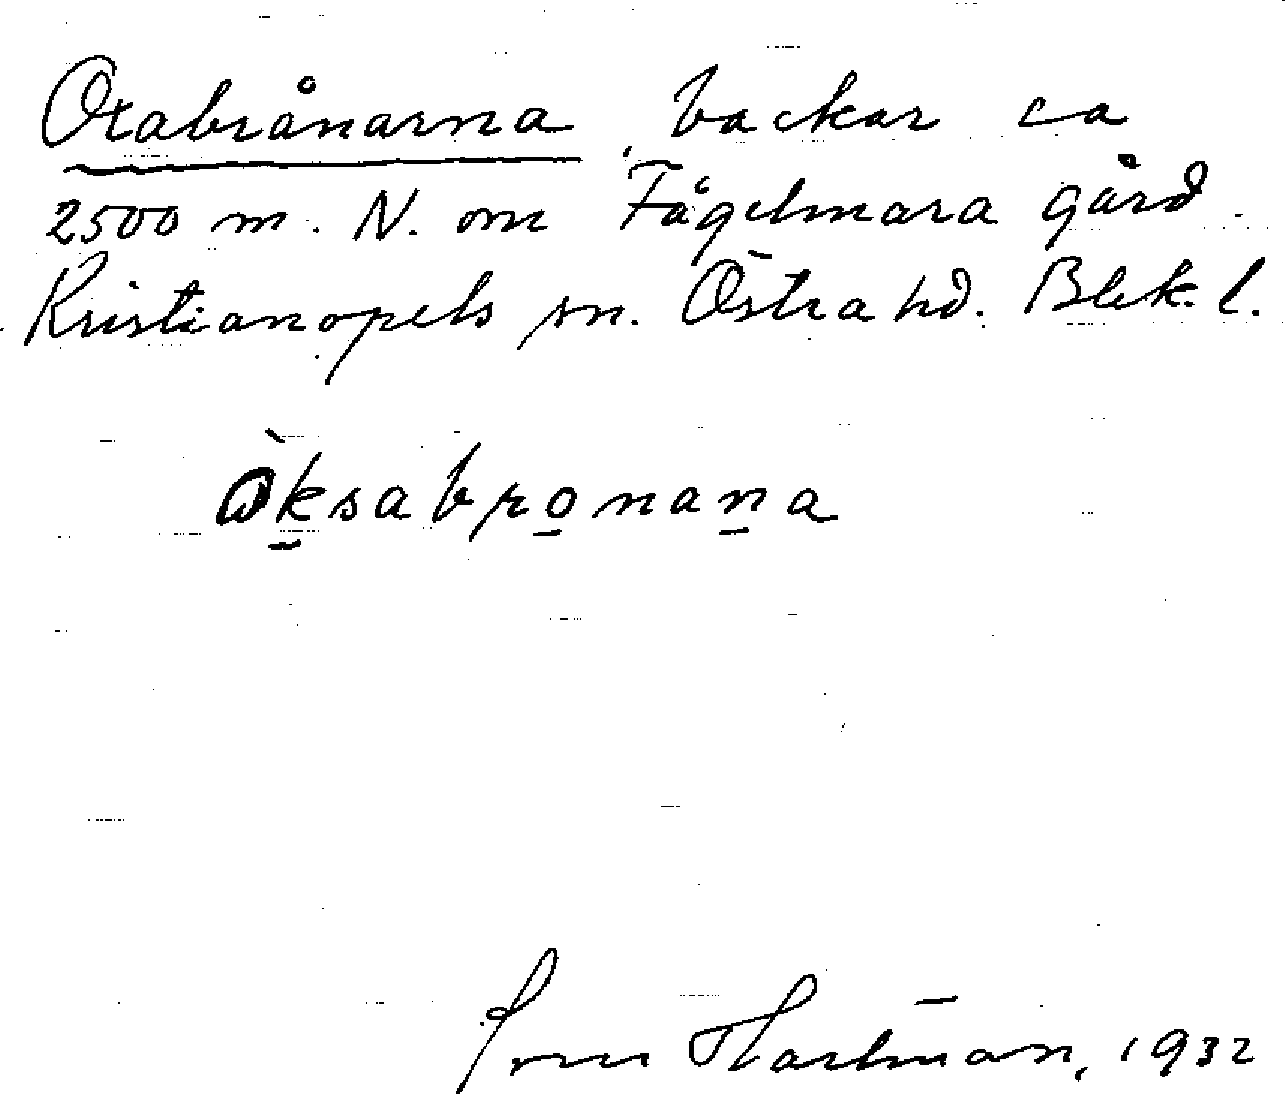 Oxabrånarna, backar ca
2500 m. N. om Fågelmara gård.
Kristianopels sn. Östra hd. Blek. l.
öksabronana
Hartman, 1932